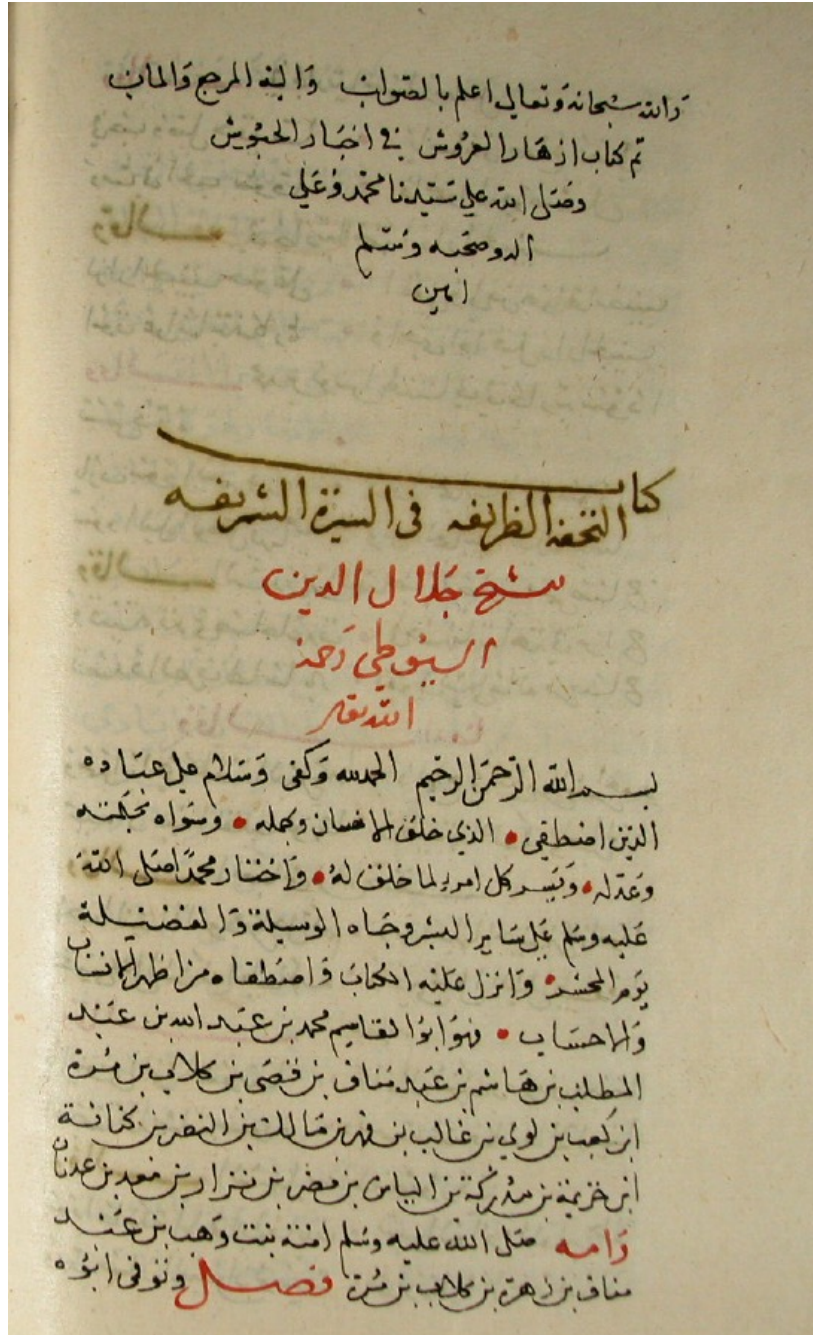 والله سبحانه وتعالي اعلم بالصواب واليه المرجع والماب
تم كتاب ازهار العروش في اخبار الحبوش
وصلي الله علي سيدنا محمد وعلي
اله وصحبه وسلم
امين
كتاب
التحفه الظريفه في السيرة الشريفه
للشيخ جلال الدين
السيوطي رحمه
الله تعالى
بسم الله الرحمن الرحيم الحمد لله وكفى وسلام علي عباده
الذين اصطفي • الذي خلق الانسان وكمله • وسواه بحكمته
وعدله • ويسر كل امرء لما خلق له • واختار محمدا صلى الله
عليه وسلم علي ساير البشر وحباه الوسيلة والفضيلة
يوم المحشر • وانزل عليه الكتاب واصطفاه من اظهر الانساب
والاحساب • فهو ابو القاسم محمد بن عبد الله بن عبد
المطلب بن هاشم بن عبد مناف بن قصى بن كلاب بن مرة
ابن كعب بن لوي بن غالب بن فهر بن مالك بن النضر بن كنانة
ابن خزيمة بن مدركة بن الياس بن مضر بن نزار بن معد بن عدنان
وامه صلى الله عليه وسلم امنة بنت وهب بن عبد
مناف بن زهرة بن كلاب بن مرة فصل وتوفى ابوه